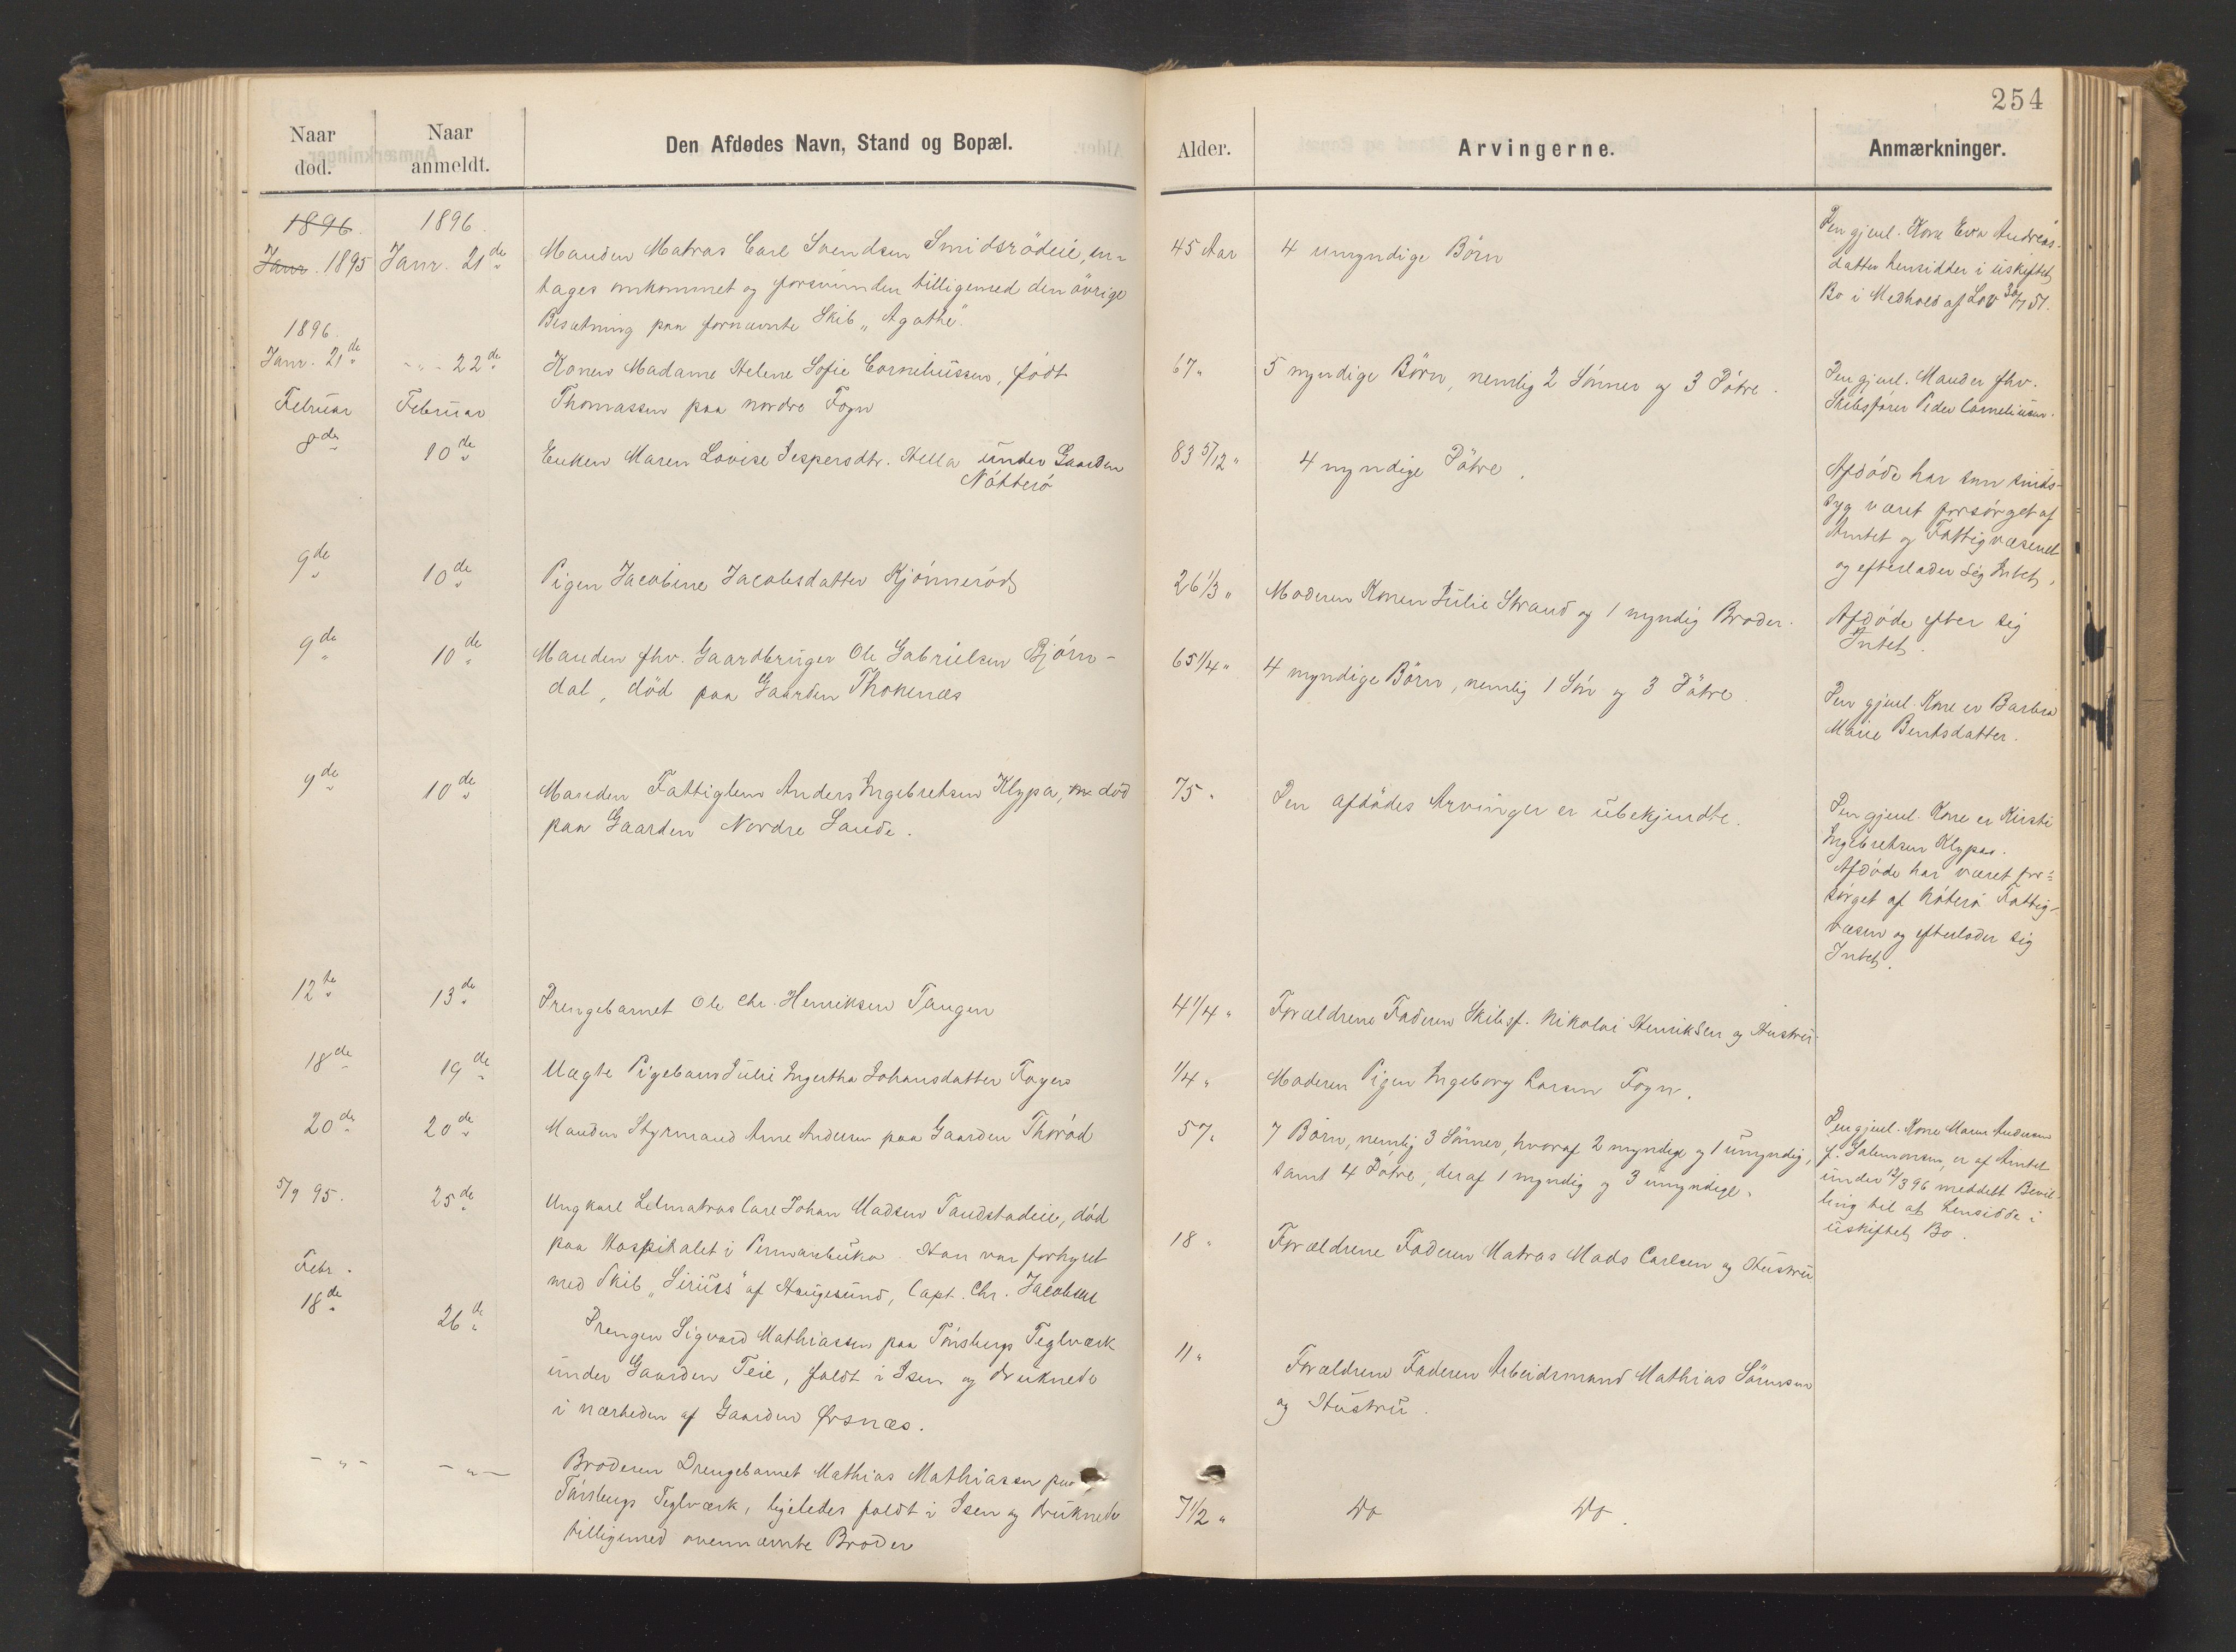 254
Naar død.
Naar anmeldt.
Den Afdødes Navn, Stand og Bopæl.
Alder.
Arvingerne.
Anmærkninger.
1896.
Janr. 1895
1896
Janr. 21de
Manden Matros Carl Svendsen Smidsrødeie, an-
tages omkommet og forsvunden tilligemed den øvrige
Besætning paa fornævnte Skib "Agathe".
45 Aar
4 umyndige Børn
Den gjenl. Kone Eva Andreas-
datter hensidder i uskiftet
Bo i Medhold af Lov 30/7 51.
1896.
Janr. 21de
- " - 22de
Konen Madame Helene Sofie Corneliussen, født
Thomassen paa nordre Føyn
67 "
5 myndige Børn, nemlig 2 Sønner og 3 Døtre.
Den gjenl. Mand er fhv.
Skibsfører Peder Corneliussen.
Februar
8de
Februar
10de
Enken Maren Lovise Jespersdtr. Hella under Gaarden
Nøtterø
83 5/12 "
4 myndige Døtre.
Afdøde har som sinds-
syg været forsørget af
Amtet og Fattigvæsenet
og efterlader sig Intet.
9de
10de
Pigen Jacobine Jacobsdatter Kjønnerød
26 1/3 "
Moderen Konen Julie Strand og 1 myndig Broder.
Afdøde efter sig
Intet.
9de
10de
Manden fhv. Gaardbruger Ole Gabrielsen Bjørn-
dal, død paa Gaarden Thokenæs
65 1/4 "
4 myndige Børn, nemlig 1 Søn og 3 Døtre.
Den gjenl. Kone er Barbra
Marie Bentsdatter.
9de
10de
Manden Fattiglem Anders Ingebretsen Klypa, død
paa Gaarden Nordre Sande.
75 "
Den afdødes Arvinger er ubekjendte.
Den gjenl. Kone er Kirsti
Ingebretsen Klypa.
Afdøde har været for-
sørget af Nøterø Fattig-
væsen og efterlader sig
Intet.
12te
13de
Drengebarnet Ole Chr. Henriksen Tangen
4 1/4 "
Forældrene Faderen Skibsf. Nikolai Henriksen og Hustru
18de
19de
Uægte Pigebarn Julie Ingertha Johansdatter
1/4 "
Moderen Pigen Ingeborg Larsen Føyn.
20de
20de
Manden Styrmand Arne Andersen paa Gaarden Thorød
57 "
7 Børn, nemlig 3 Sønner, hvoraf 2 myndige og 1 umyndig,
samt 4 Døtre, deraf 1 myndig og 3 umyndige.
Den gjenl. Kone Maren Andersen
f. Salomonsen, er af Amtet
under 12/3 96 meddelt Bevil-
ling til at hensidde i
uskiftet Bo.
5/9 95.
25de
Ungkarl Letmatros Carl Johan Madsen Tandstadeie, død
paa Hospitalet i Pernambuko. Han var forhyret
med Skib "Sirius" af Haugesund, Capt. Chr. Jacobsen
18 "
Forældrene Faderen Matros Mads Carlsen og Hustru
Febr.
18de
26de
Drengen Sigvard Mathiassen paa Tønsbergs Teglværk
under Gaarden Teie, faldt i Isen og druknede
i nærheden af Gaarden Ørsnæs.
11 "
Forældrene Faderen Arbeidsmand Mathias Sørensen
og Hustru.
- " -
- " -
Broderen Drengebarnet Mathias Mathiassen paa
Tønsbergs Teglværk, ligeledes faldt i Isen og druknede
tilligemed ovennævnte Broder
7 1/2 "
Do Do.